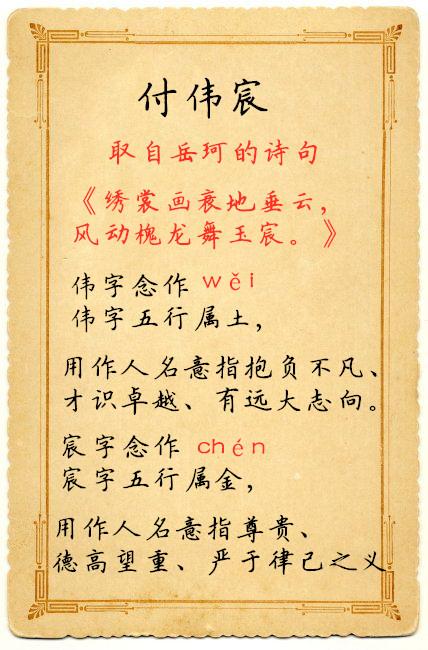 付伟宸
取自岳珂的诗句
《绣裳画衮地垂云，
风动槐龙舞玉宸。》
伟字念作 wěi
伟字五行属土，
用作人名意指抱负不凡、
才识卓越、有远大志向。
宸字念作 chén
宸字五行属金，
用作人名意指尊贵、
德高望重、严于律己之义